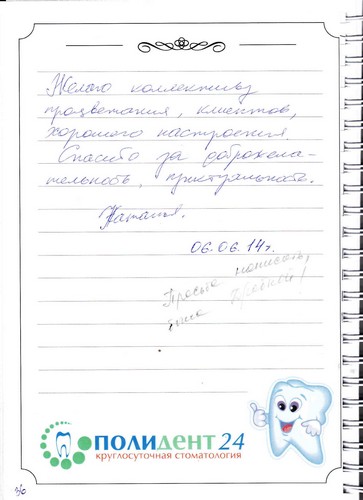 Желаю коллективу
процветания, клиентов,
хорошего настроения.
Спасибо за доброжела-
тельность, пунктуальность.
Наталья.
06.06.14г.
Просьба написать,
ручкой!
ПОЛИДЕНТ 24
круглосуточная стоматология
3/6